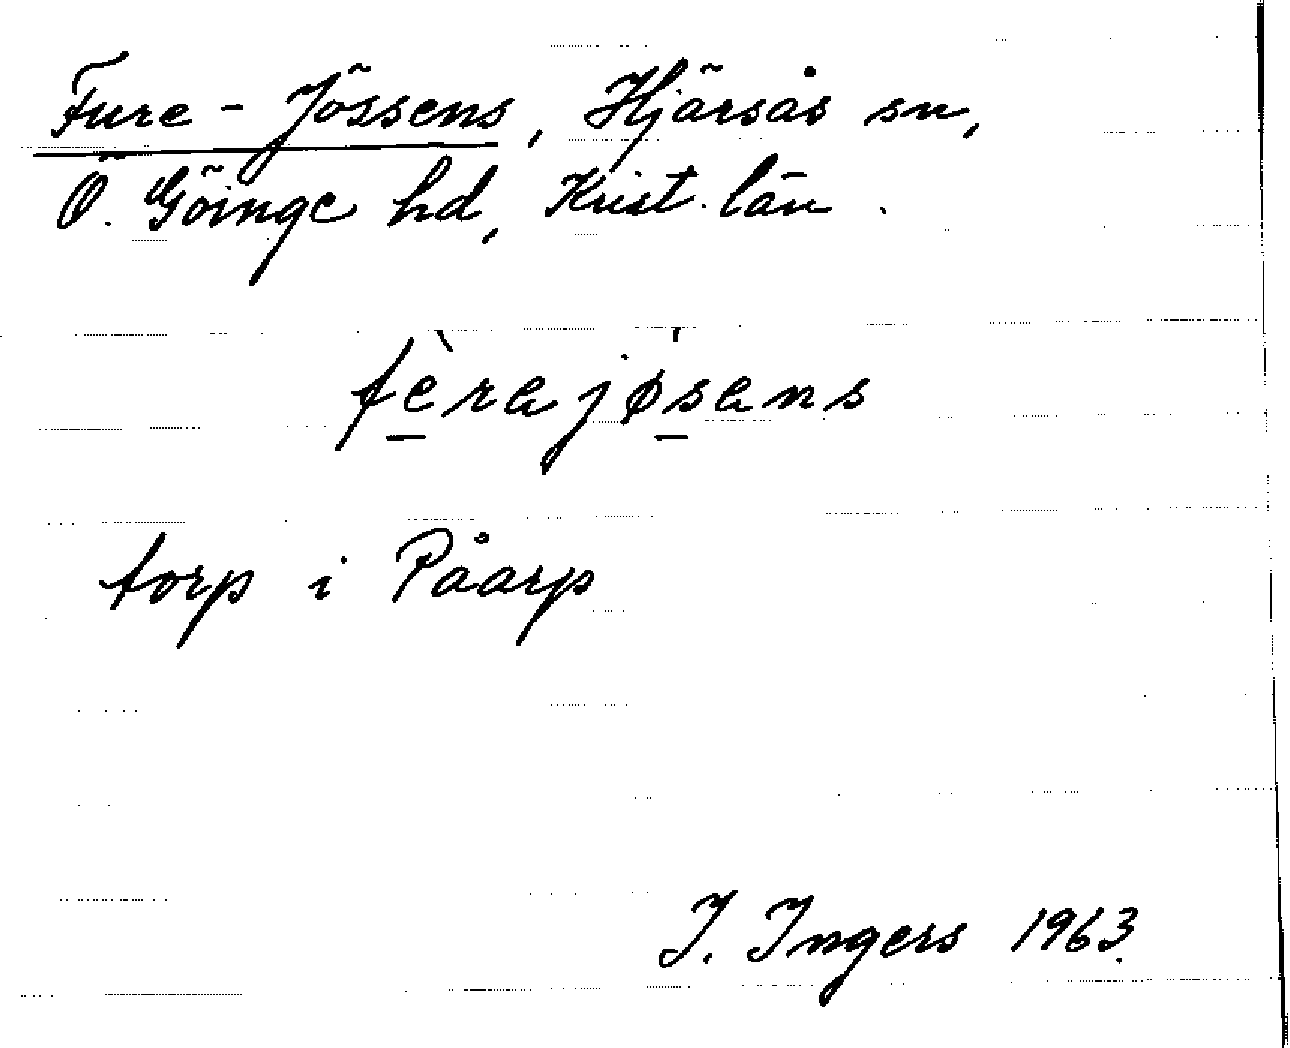 Fure-Jössens, Hjärsås sn,
Ö. Göinge hd, Krist. län.
fèrajøsens
torp i Påarp
I. Ingers 1963.